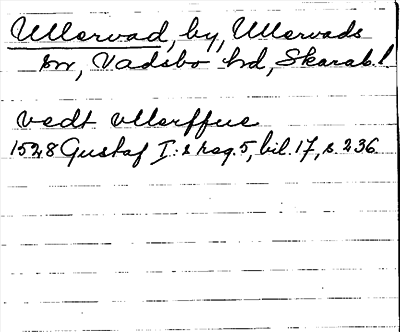 Ullervad, by, Ullervads
sn, Vadsbo hd, Skarab.l.
vedt vllerffue
1528 Gustaf I:s reg. 5, bil. 17, s. 236